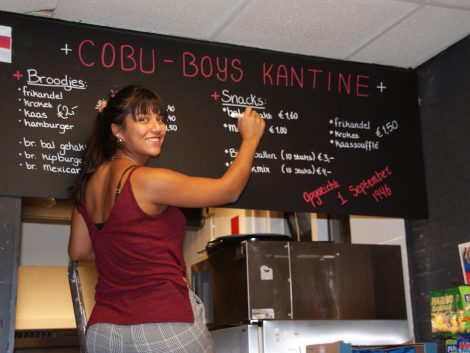 + COBU-BOYS KANTINE +
+ Broodjes:
*frikandel
*kroket
*kaas
*hamburger
*br. bal gehakt
*br. kipburger
*br. mexicano
+ Snacks:
€1,60
€1,80
(10 stuks) €3,-
(10 stuks) €4,-
*frikandel
*kroket €1,50
*kaassoufflé
opgericht
1 September
1946